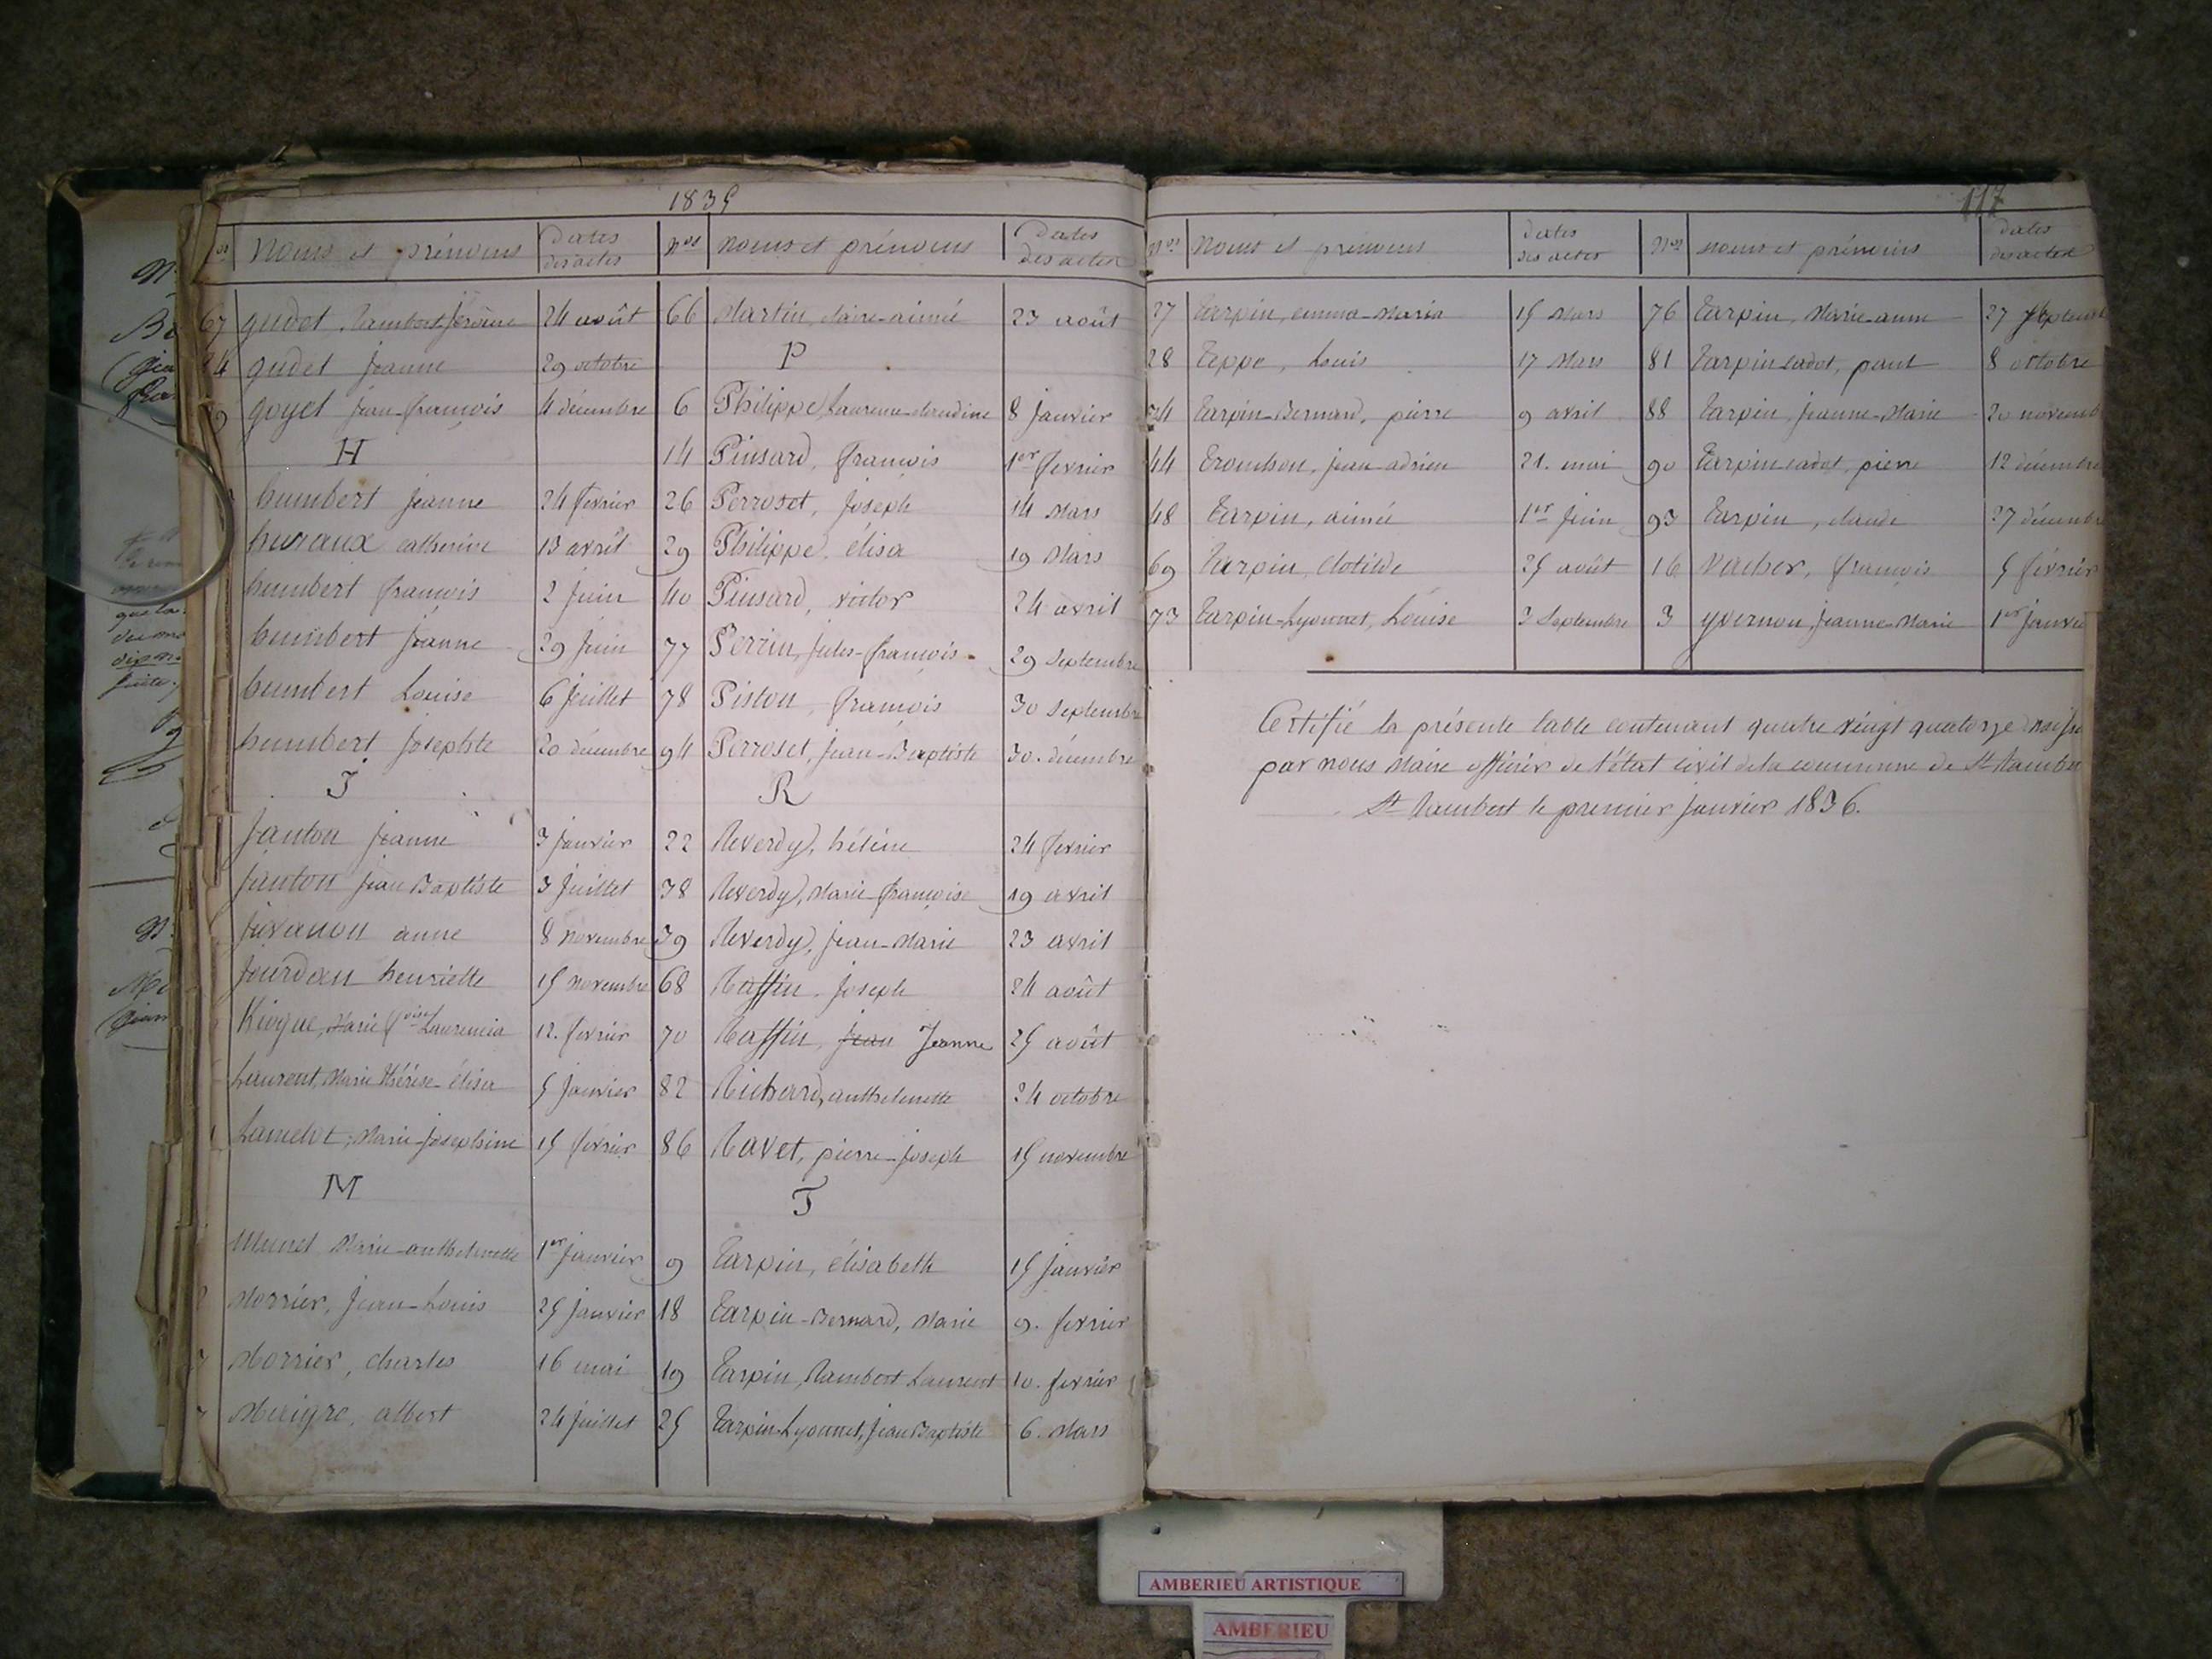 1835
Noms et prénoms
Dates des actes
Nos
Noms et prénoms
Dates des actes
67 gudet Rambert Jérôme 24 août
gudet jeanne 29 octobre
goyet jean-françois 4 décembre
H
humbert jeanne 24 fevrier
huraux catherine 13 avril
humbert françois 2 juin
humbert jeanne 29 juin
humbert Louise 6 juillet
humbert josephte 20 décembre
J
janton jeanne 3 janvier
janton jean Baptiste 3 juillet
juvanon anne 8 novembre
jourdan henriette 15 novembre
Marie foise Laurencia 12. fevrier
Laurent, Marie Thérèse-élisa 5 janvier
Marie-josephine 15 fevrier
M
Marie-anthelmette 1er janvier
Morrier, jean-Louis 25 janvier
Morrier, charles 16 mai
Maigre, albert 24 juillet
66 Martin, claire-aimée 23 août
P
6 Philippe, Laurence-claudine 8 janvier
14 Pinsard, françois 1er fevrier
26 Perroset, joseph 14 Mars
29 Philippe, élisa 19 Mars
40 Pinsard, victor 24 avril
77 Perrin, jules-françois 29 septembre
78 Piston, françois 30 septembre
94 Perroset, jean-Baptiste 30. décembre
R
22 Reverdy, hélène 24 fevrier
38 Reverdy, Marie-françoise 19 avril
39 Reverdy, jean-Marie 23 avril
68 Raffin, joseph 24 août
70 Raffin, jean Jeanne 25 août
82 Richard, anthelmette 24 octobre
86 Ravet, pierre-joseph 15 novembre
T
9 Tarpin, élisabeth 15 janvier
18 Tarpin-Bernard, Marie 9. fevrier
19 Tarpin, Rambert Laurent 10. fevrier
25 Tarpin-Lyonnet, jean Baptiste 6. Mars
117
Nos
Noms et prénoms
dates des actes
Nos
noms et prénoms
dates des actes
27 Tarpin, emma-Maria 15 Mars
28 Teppe, Louis 17 Mars
34 Tarpin-Bernard, pierre 9 avril
44 Trombon, jean-adrien 21. mai
48 Tarpin, aimée 1er juin
69 Tarpin, clotilde 25 août
73 Tarpin-Lyonnet, Louise 3 septembre
76 Tarpin, Marie-anne 27
81 Tarpin cadot, paul 8 octobre
88 Tarpin, jeanne-Marie 20 novemb
90 Tarpin cadot, pierre 12 décembre
93 Tarpin, claude 27 décembr
16 Vacher, françois 5 février
3 yvernon, jeanne-Marie 1er janvie
Certifié la présente table contenant quatre vingt quatorze
par nous Maire officier de l'état civil de la commune de St Rambe
St Rambert le premier janvier 1836.
AMBERIEU ARTISTIQUE
AMBERIEU